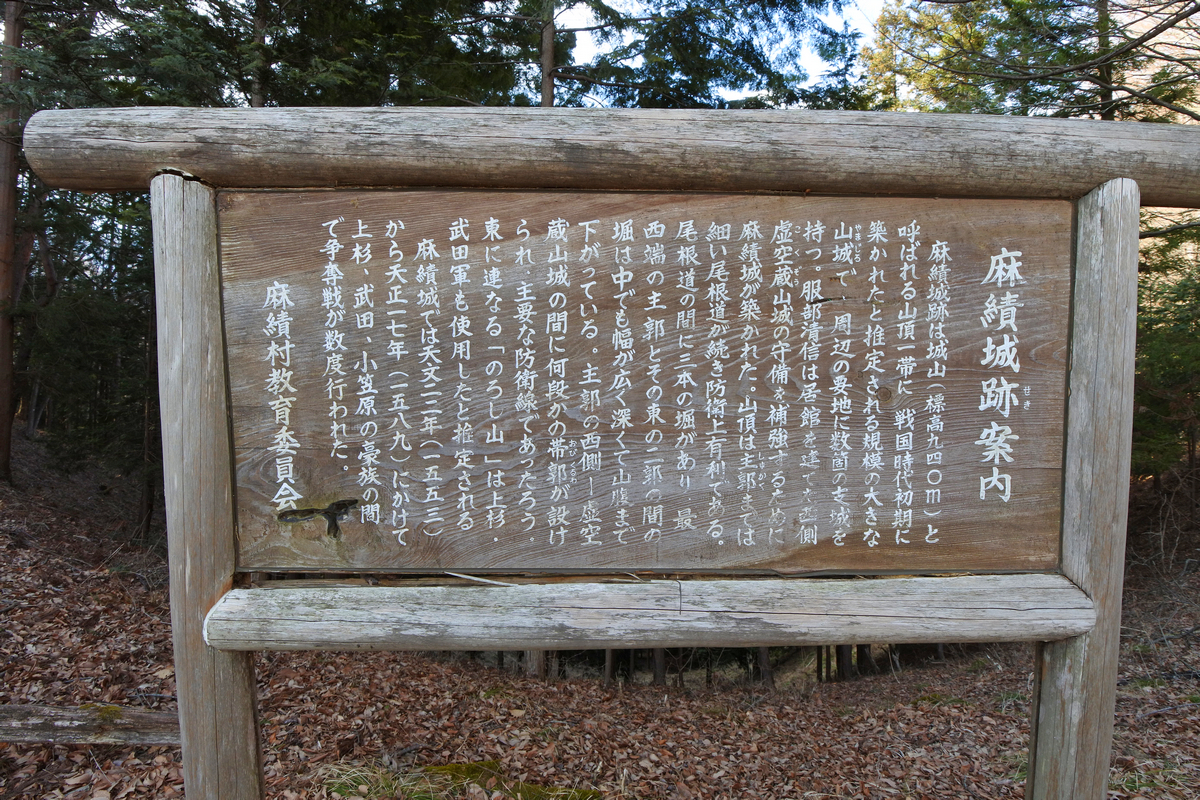 麻績城跡案内
せき
麻績城跡は城山(標高九四〇m)と
呼ばれる山頂一帯に、戦国時代初期に
築かれたと推定される規模の大きな
やまじろ
山城で、周辺の要地に数箇の支城を
持つ。服部清信は居館を建てた西側
こくぞう
虚空蔵山城の守備を補強するために
麻績城が築かれた。山頂は主郭までは
しゅかく
細い尾根道が続き防衛上有利である。
尾根道の間に三本の堀があり、最
西端の主郭とその東の二郭の間の
堀は中でも幅が広く深くて山腹まで
下がっている。主郭の西側―虚空
蔵山城の間に何段かの帯郭が設け
おびくるわ
られ、主要な防衛線であったろう。
東に連なる「のろし山」は上杉・
武田軍も使用したと推定される
麻績城では天文二二年(一五五三)
から天正一七年(一五八九)にかけて
上杉、武田、小笠原の豪族の間
で争奪戦が数度行われた。
麻績村教育委員会